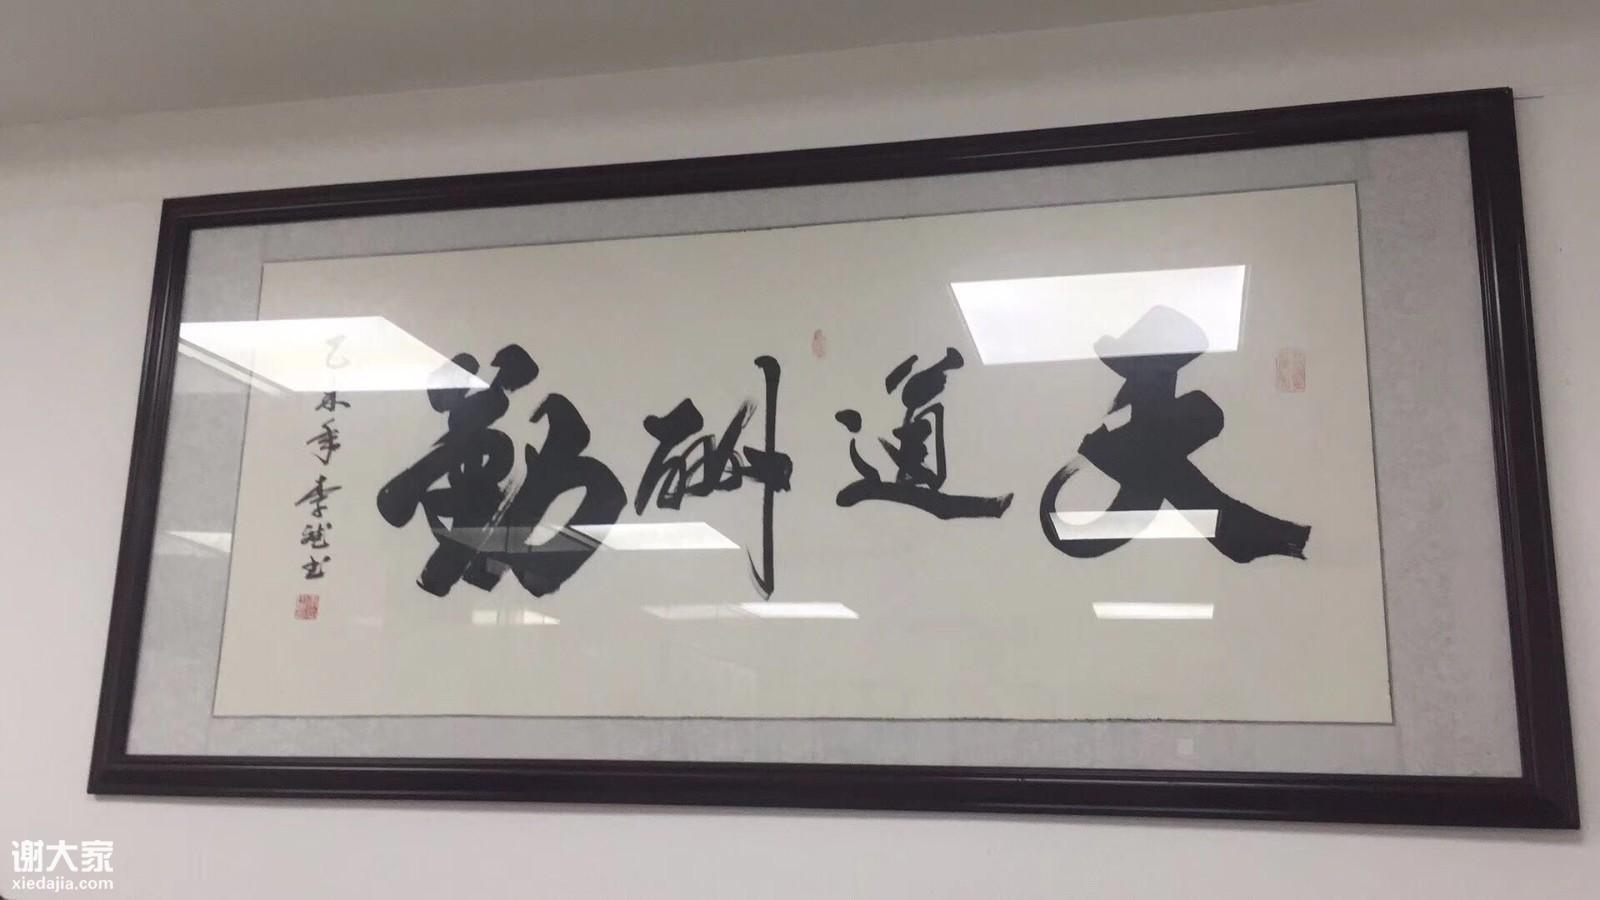 天道酬勤
乙未年 李 书
谢大家
xiedajia.com